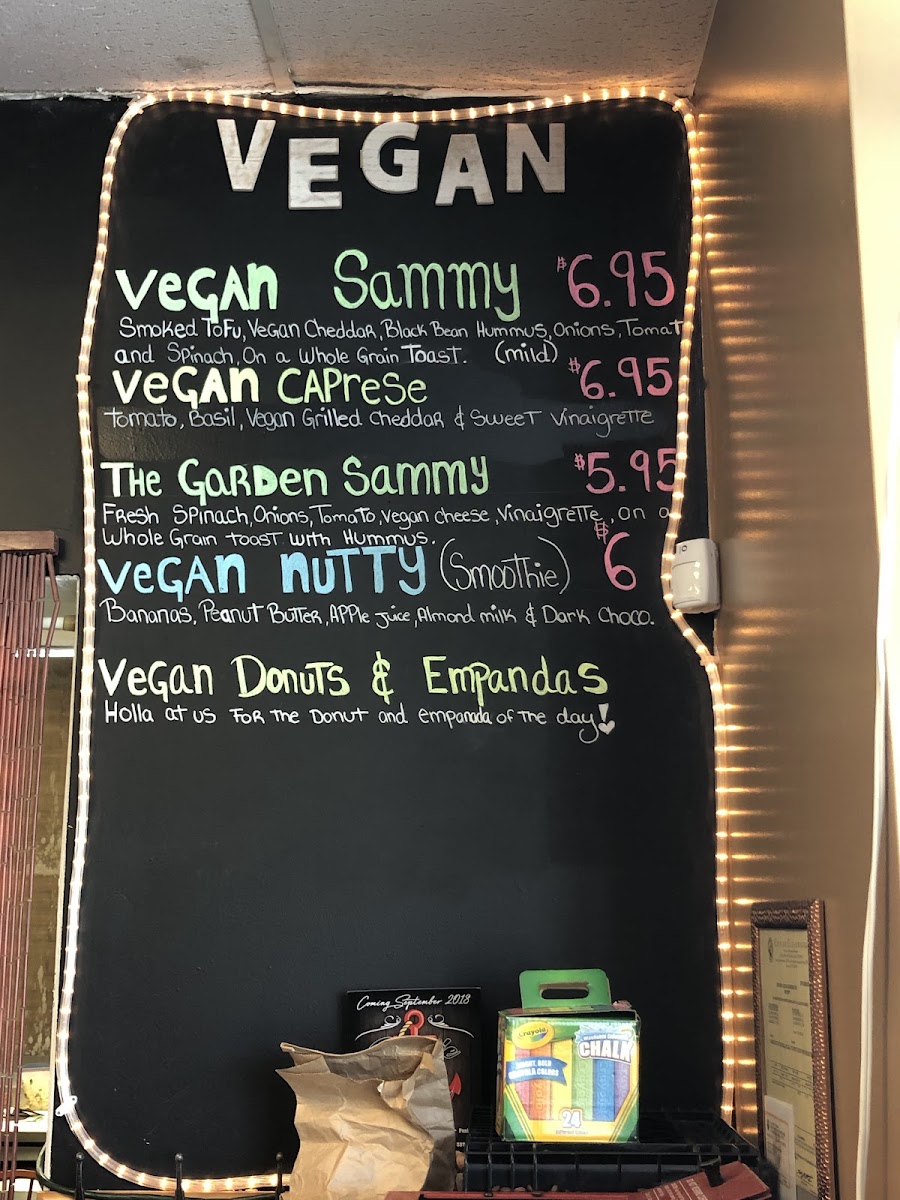 VEGAN
VEGAN Sammy $6.95
Smoked ToFu, Vegan Cheddar, Black Bean Hummus, Onions, Tomat
and Spinach, On a Whole Grain Toast. (mild)
VEGAN CAPrese $6.95
Tomato, Basil, Vegan Grilled Cheddar & Sweet Vinaigrette
The Garden Sammy $5.95
Fresh Spinach, Onions, Tomato, Vegan cheese, Vinaigrette, on a
Whole Grain toast with Hummus.
VEGAN NUTTY (Smoothie) $6
Bananas, Peanut Butter, APPle juice, Almond milk & Dark Choco.
Vegan Donuts & Empandas
Holla at us For The Donut and empanada of The day!
Coming September 2018
Crayola
CHALK
24